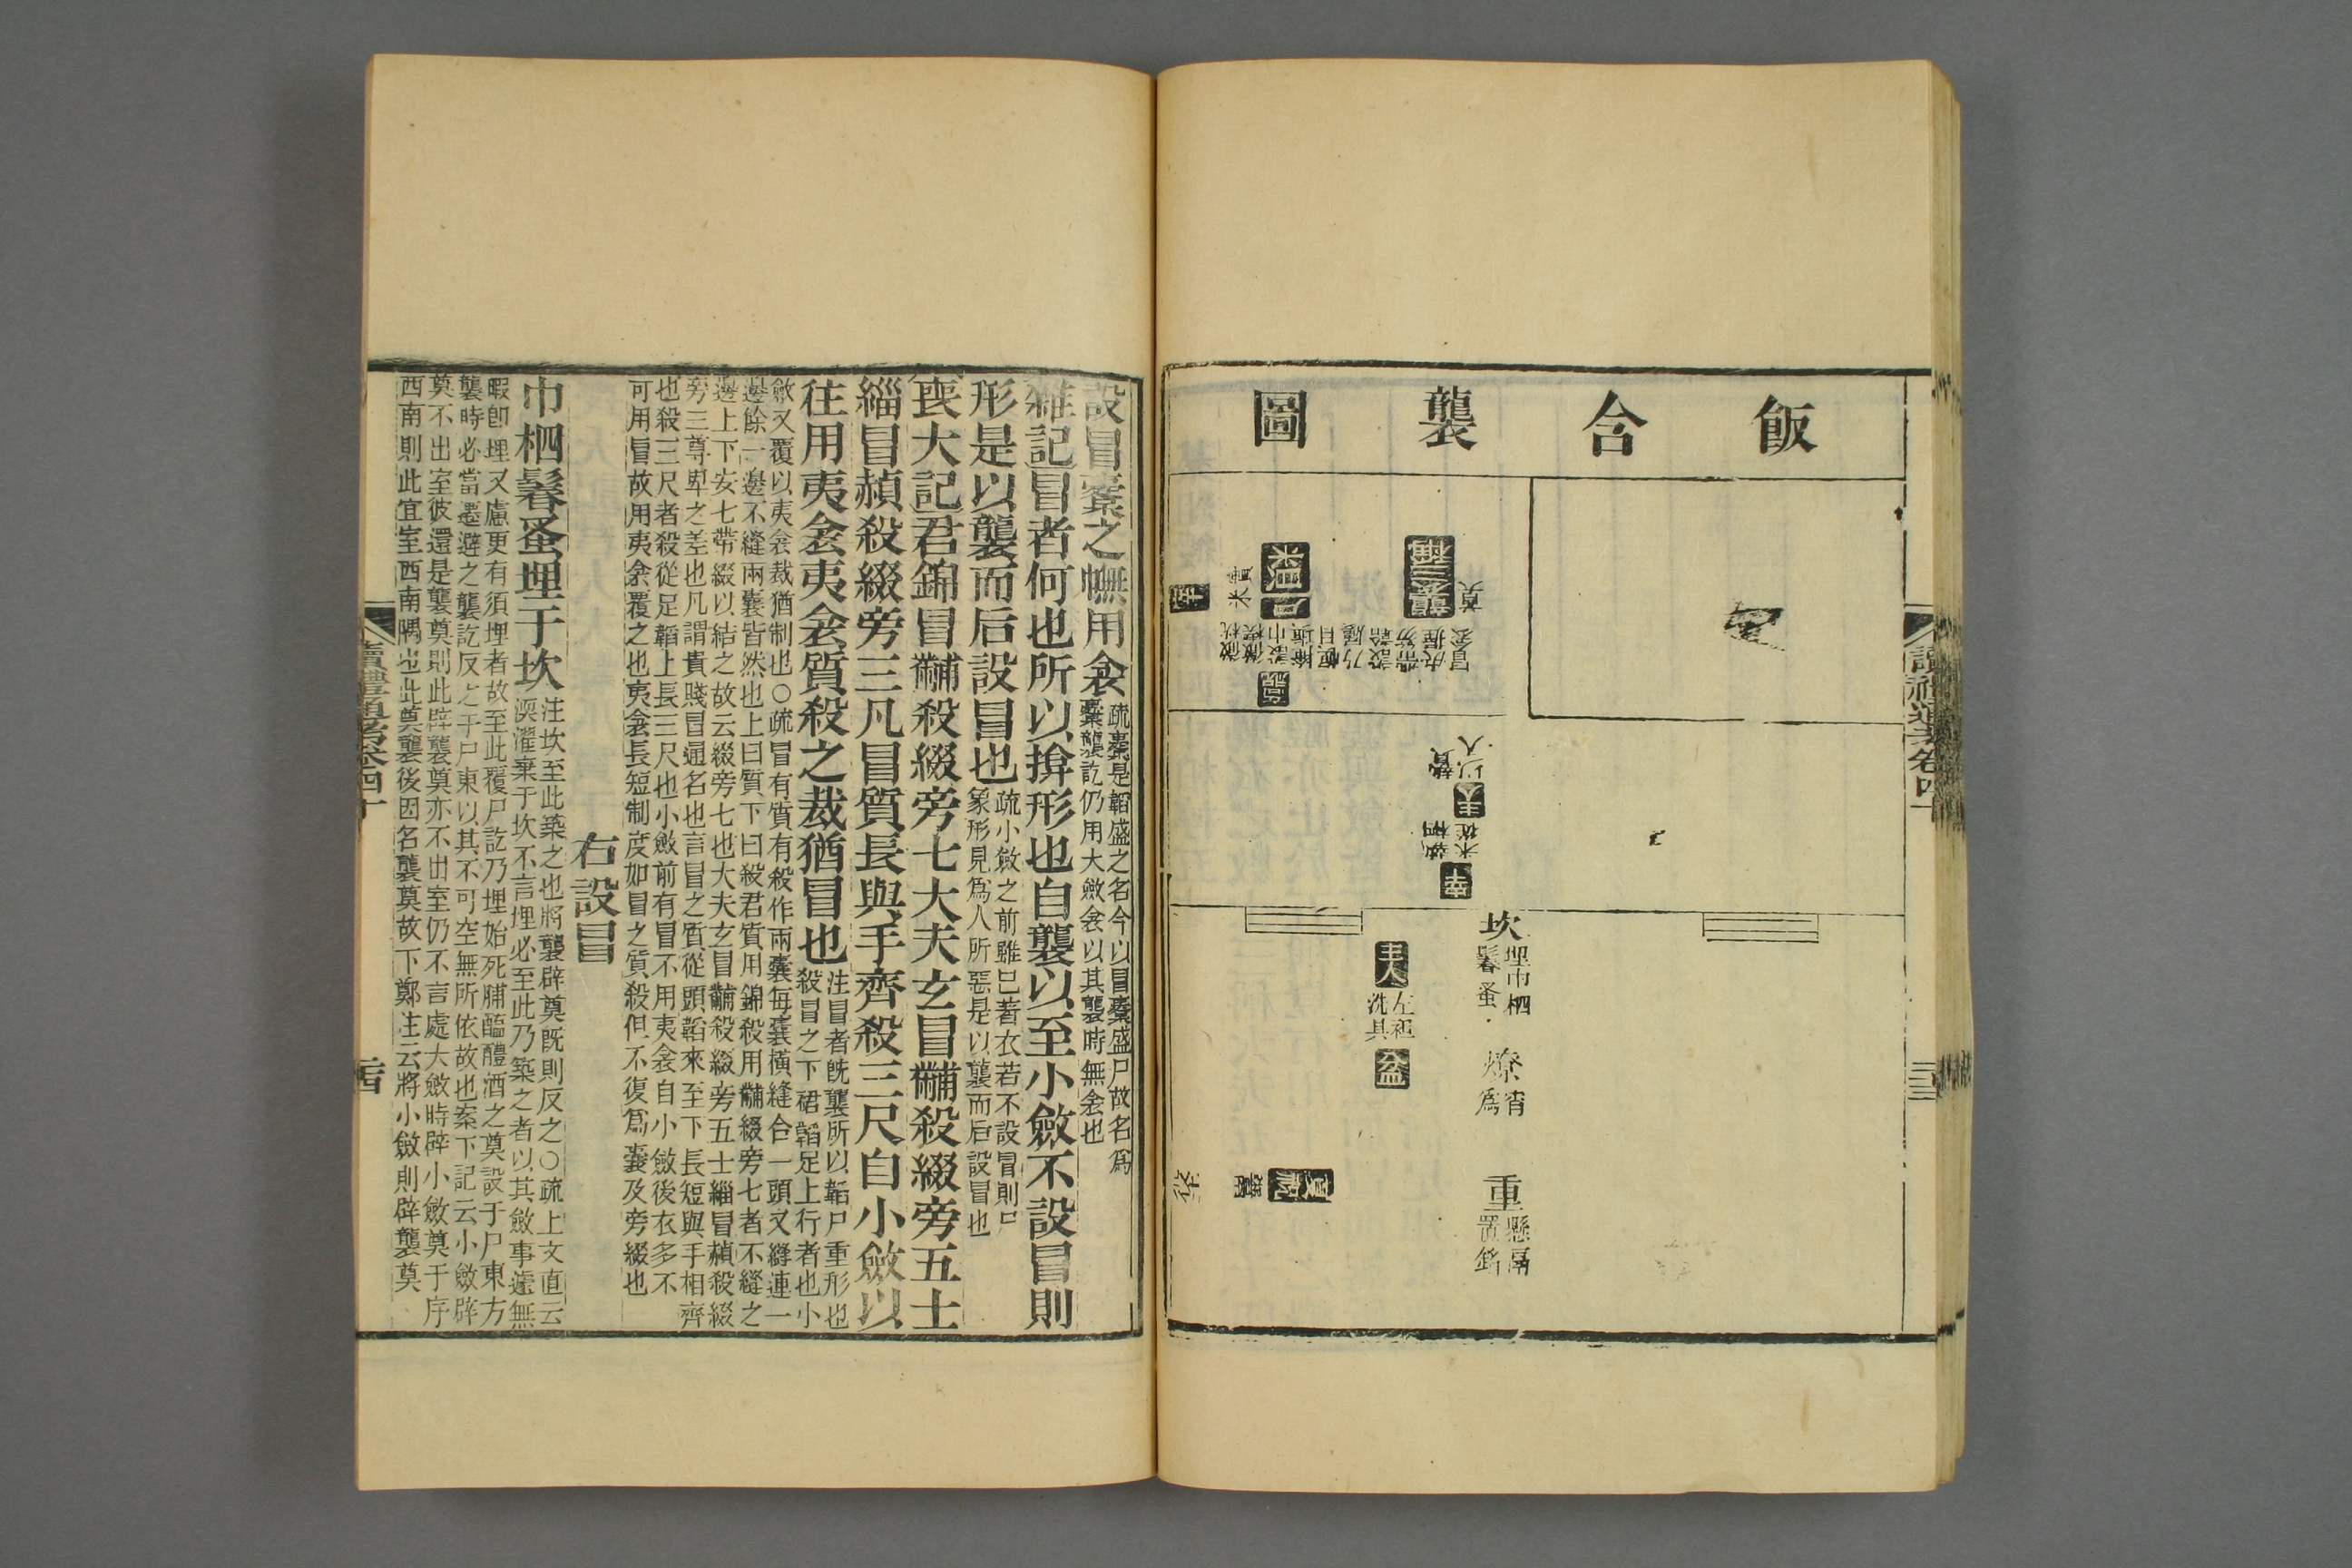 飯含襲圖
坎
埋巾柶
鬠蚤
燎
宵
爲
重
懸鬲
主人
左袒
洗貝
盆
設冒櫜之幠用衾
疏櫜是韜盛之名今以冒櫜盛尸故名爲
櫜襲訖仍用大斂衾以其襲時無衾也
雜記冒者何也所以揜形也自襲以至小斂不設冒則
形是以襲而后設冒也
疏小斂之前雖已著衣若不設冒則尸
象形見爲人所惡是以襲而后設冒也
喪大記君錦冒黼殺綴旁七大夫玄冒黼殺綴旁五士
緇冒赬殺綴旁三凡冒質長與手齊殺三尺自小斂以
往用夷衾夷衾質殺之裁猶冒也
注冒者既襲所以韜尸重形也
殺冒之下裙韜足上行者也小
斂又覆以夷衾裁猶制也○疏冒有質有殺作兩囊每囊橫縫合一頭又縫連一
邊餘一邊不縫兩囊皆然也上曰質下曰殺君質用錦殺用黼綴旁七者不縫之
邊上下安七帶綴以結之故云綴旁七也大夫玄冒黼殺綴旁五士緇冒赬殺綴
旁三尊卑之差也凡謂貴賤冒通名也言冒之質從頭韜來至下長短與手相齊
也殺三尺者殺從足韜上長三尺也小斂前有冒不用夷衾自小斂後衣多不
可用冒故用夷衾覆之也夷衾長短制度如冒之質殺但不復爲囊及旁綴也
右設冒
巾柶鬠蚤埋于坎
注坎至此築之也將襲辟奠既則反之○疏上文直云
渜濯棄于坎不言埋必至此乃築之者以其斂事遽無
暇卽埋又慮更有須埋者故至此覆尸訖乃埋始死脯醢醴酒之奠設于尸東方
襲時必當遷避之襲訖反之于尸東以其不可空無所依故也案下記云小斂辟
奠不出室彼還是襲奠則此辟襲奠亦不出室仍不言處大斂時辟小斂奠于序
西南則此宜室西南隅也此奠襲後因名襲奠故下鄭注云將小斂則辟襲奠
讀禮通考卷四十